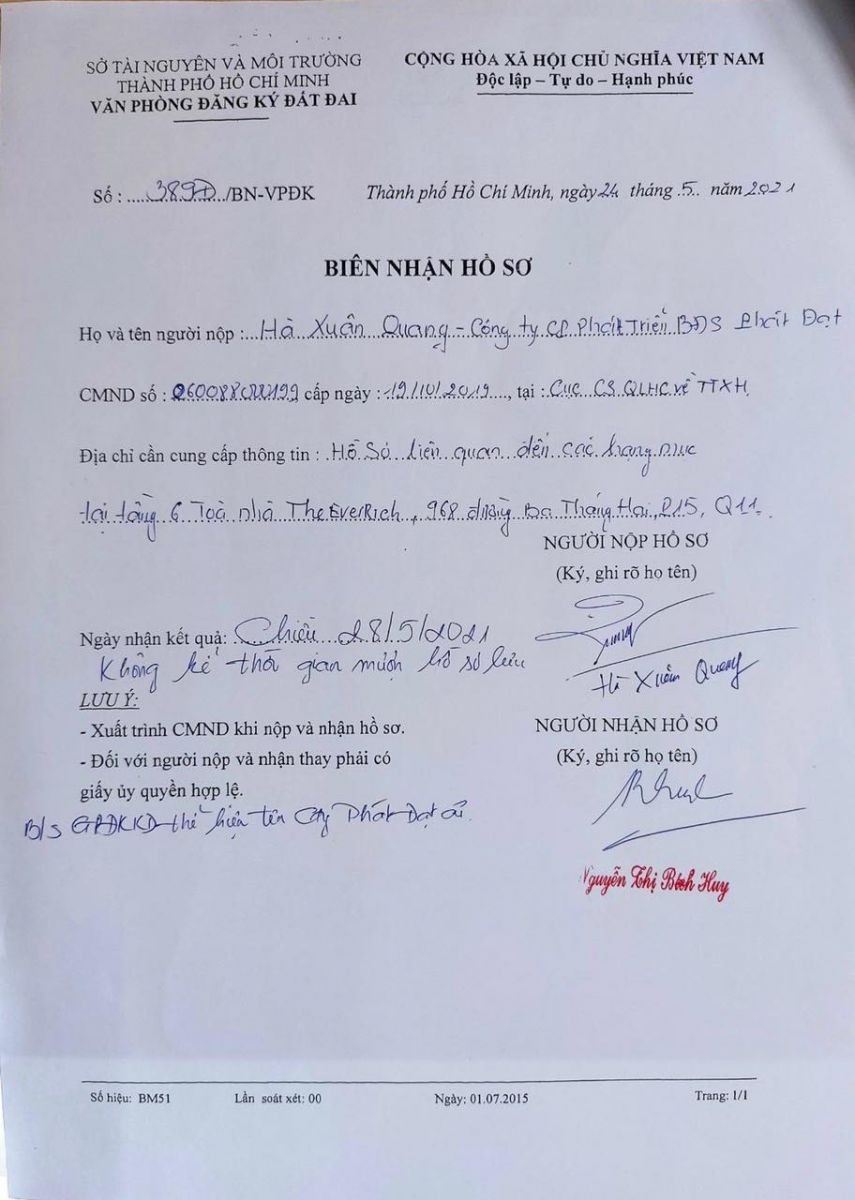 SỞ TÀI NGUYÊN VÀ MÔI TRƯỜNG
THÀNH PHỐ HỒ CHÍ MINH
VĂN PHÒNG ĐĂNG KÝ ĐẤT ĐAI
CỘNG HÒA XÃ HỘI CHỦ NGHĨA VIỆT NAM
Độc lập – Tự do – Hạnh phúc
Số : ...../BN-VPĐK
Thành phố Hồ Chí Minh, ngày 24 tháng 5 năm 2021
BIÊN NHẬN HỒ SƠ
Họ và tên người nộp : Hà Xuân Quang - Công ty CP Phát Triển BĐS Phát Đạt
CMND số : cấp ngày : 19/10/2019, tại : Cục CS QLHC về TTXH
Địa chỉ cần cung cấp thông tin : Hồ Sơ liên quan đến các hạng mục
tại tầng 6 Toà nhà TheEverRich, 968 đường Ba Tháng Hai, P15, Q11.
NGƯỜI NỘP HỒ SƠ
(Ký, ghi rõ họ tên)
Hà Xuân Quang
Ngày nhận kết quả: Chiều 28/5/2021
Không kể thời gian mượn hồ sơ lưu
LƯU Ý:
- Xuất trình CMND khi nộp và nhận hồ sơ.
- Đối với người nộp và nhận thay phải có
giấy ủy quyền hợp lệ.
B/s GPĐKKD thể hiện tên Cty Phát Đạt
NGƯỜI NHẬN HỒ SƠ
(Ký, ghi rõ họ tên)
Nguyễn Thị Bích Huy
Số hiệu: BM51
Lần soát xét: 00
Ngày: 01.07.2015
Trang: 1/1